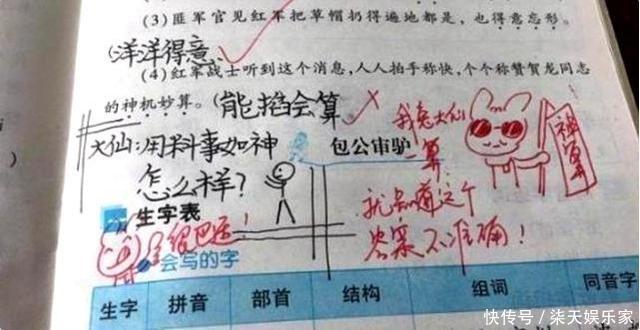 (3)匪军官见红军把草帽扔得遍地都是，也得意忘形。
(洋洋得意
(4)红军战士听到这个消息，人人拍手称快，个个称赞贺龙同志
的神机妙算。(能掐会算)
大仙:用料事如神
怎么样?
包公审驴
我兔大仙
一算:
就知道这个
答案不准确!
神算
生字表
会写的字
生字 拼音 部首 结构 组词 同音字
快传号/柒天娱乐家